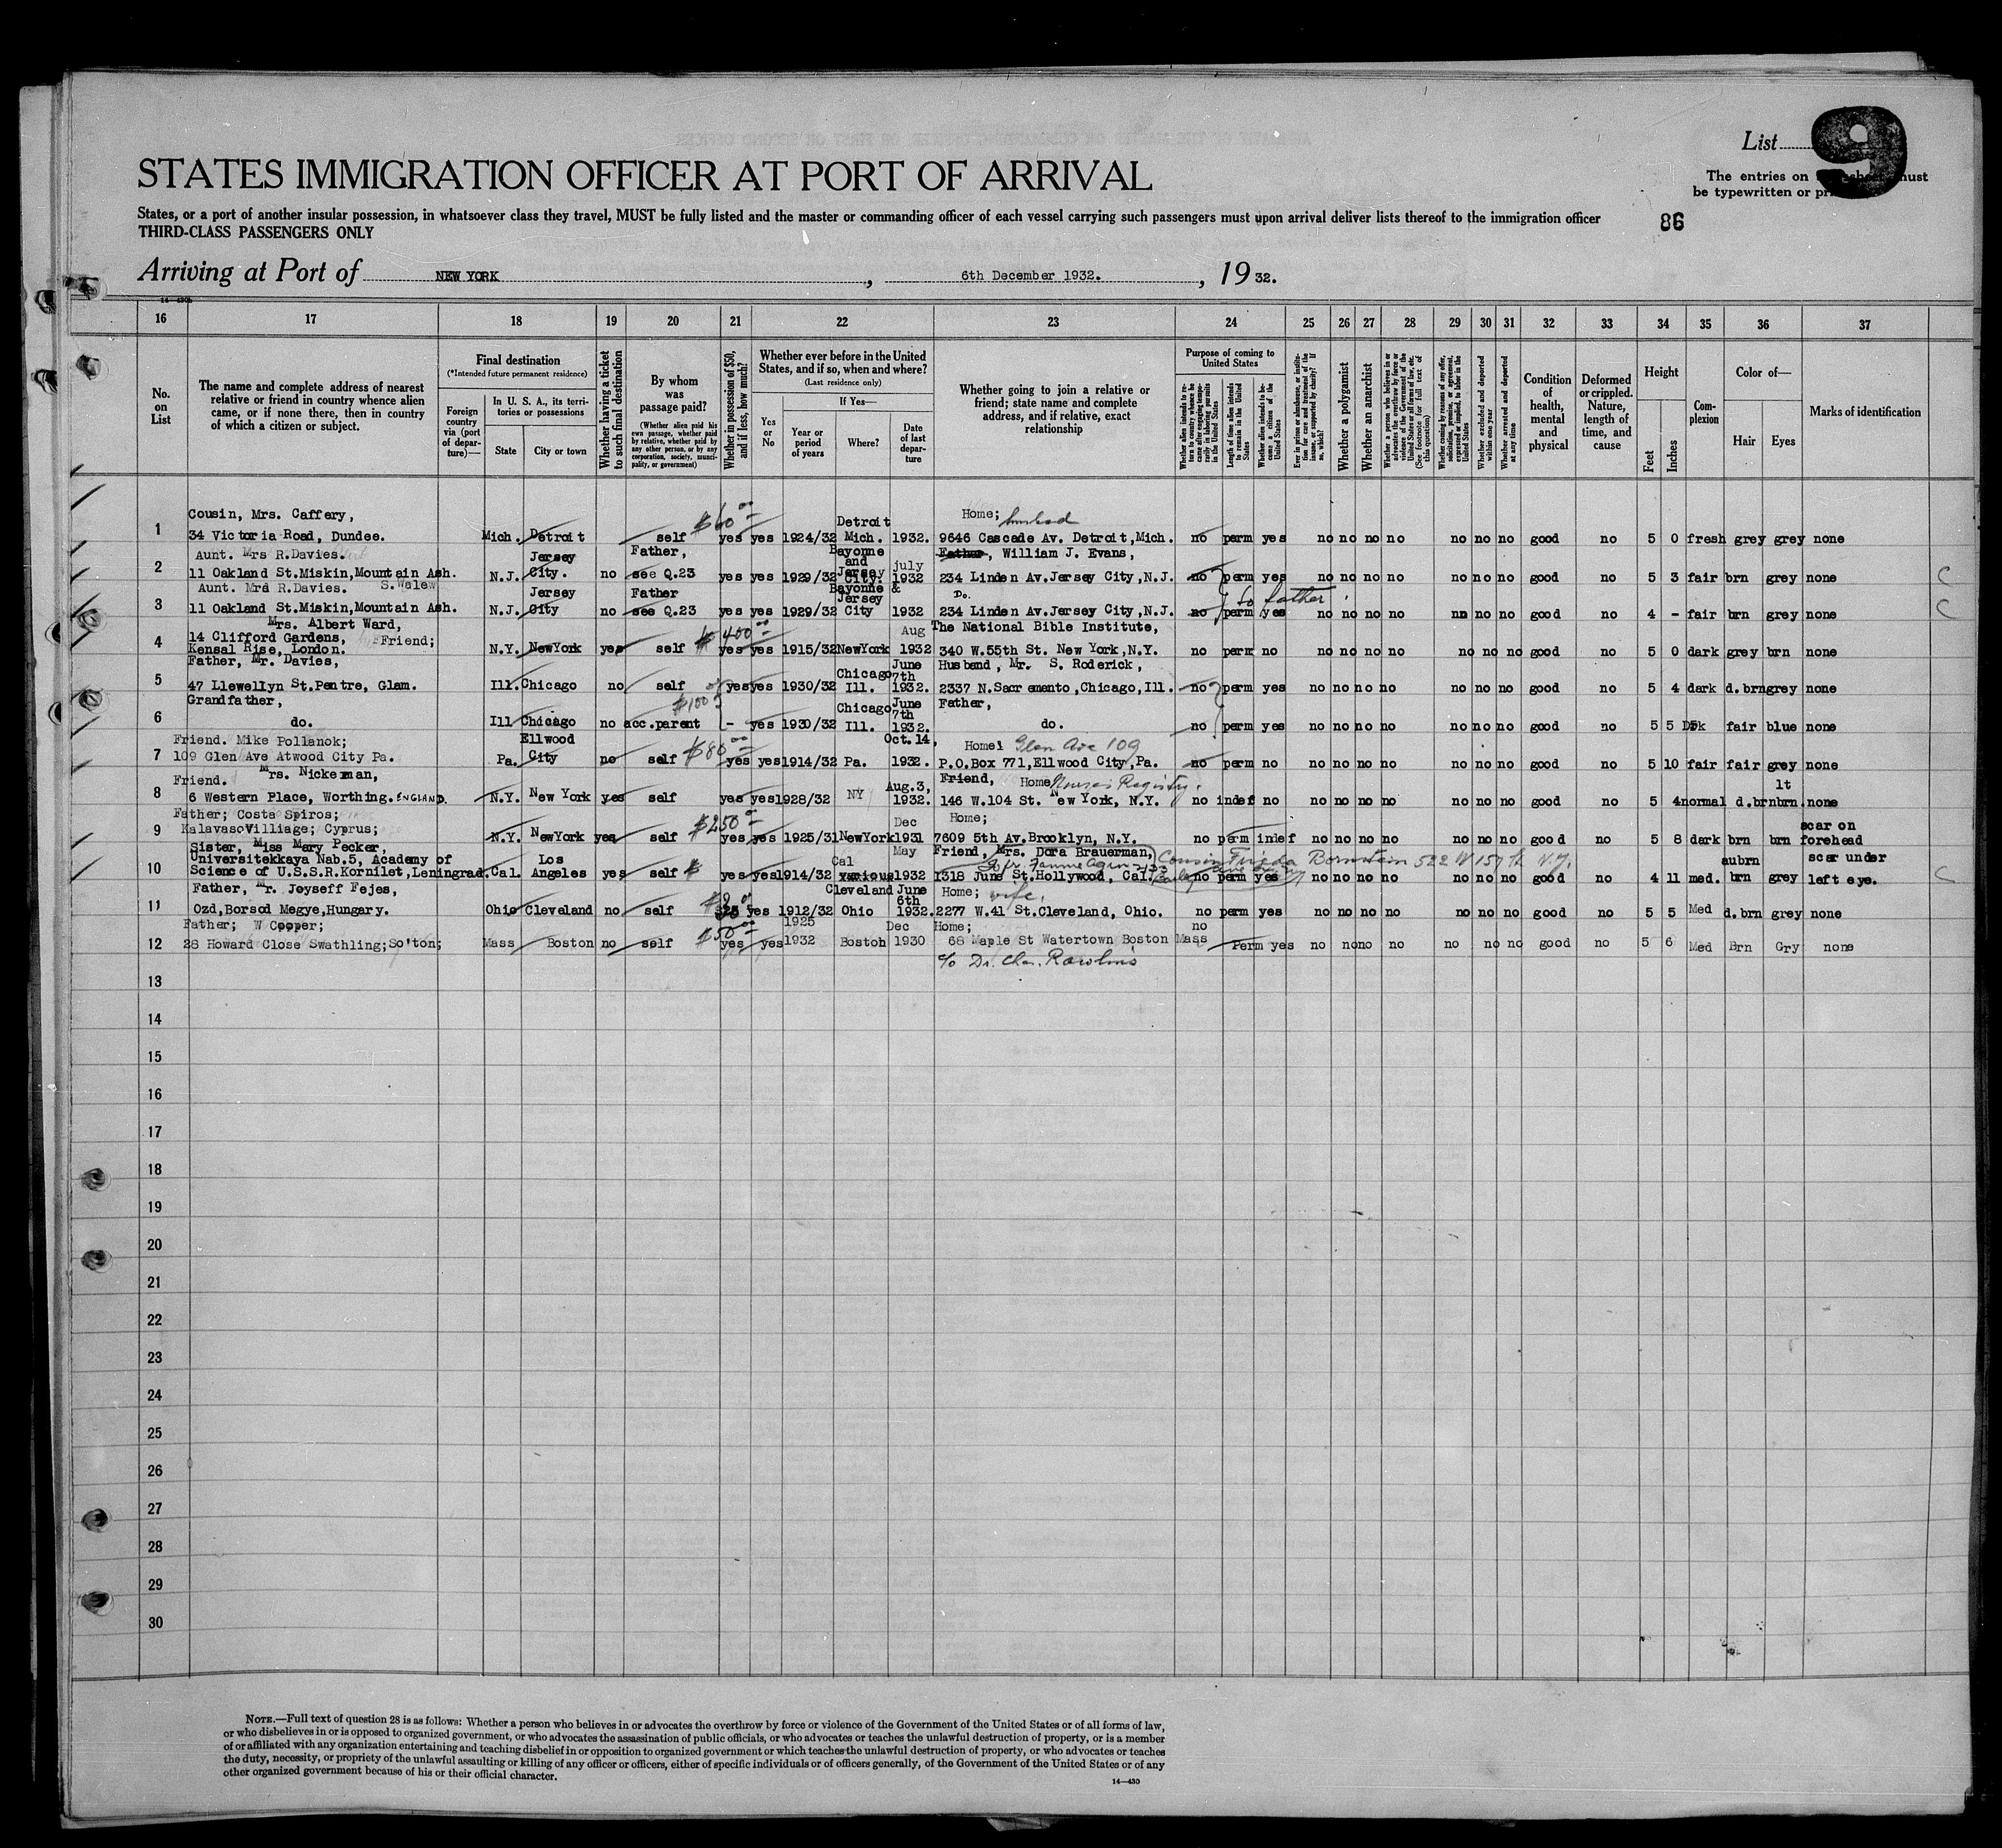 List 9
The entries on this sheet must
be typewritten or pri
STATES IMMIGRATION OFFICER AT PORT OF ARRIVAL
States, or a port of another insular possession, in whatsoever class they travel, MUST be fully listed and the master or commanding officer of each vessel carrying such passengers must upon arrival deliver lists thereof to the immigration officer
THIRD-CLASS PASSENGERS ONLY
86
Arriving at Port of NEW YORK, 6th December 1932., 19 32.
14—430b
16 17 18 19 20 21 22 23 24 25 26 27 28 29 30 31 32 33 34 35 36 37
No. on List
The name and complete address of nearest relative or friend in country whence alien came, or if none there, then in country of which a citizen or subject.
Final destination
(*Intended future permanent residence)
Foreign country via (port of departure)—
In U. S. A., its territories or possessions
State City or town
Whether having a ticket to such final destination
By whom was passage paid?
(Whether alien paid his own passage, whether paid by relative, whether paid by any other person, or by any corporation, society, municipality, or government)
Whether in possession of $50, and if less, how much?
Whether ever before in the United States, and if so, when and where?
(Last residence only)
Yes or No
If Yes—
Year or period of years Where? Date of last departure
Whether going to join a relative or friend; state name and complete address, and if relative, exact relationship
Purpose of coming to United States
Whether alien intends to return to country whence he came after engaging temporarily in laboring pursuits in the United States
Length of time alien intends to remain in the United States
Whether alien intends to become a citizen of the United States
Ever in prison or almshouse, or institution for care and treatment of the insane, or supported by charity? If so, which?
Whether a polygamist
Whether an anarchist
Whether a person who believes in or advocates the overthrow by force or violence of the Government of the United States or all forms of law, etc. (See footnote for full text of this question)
Whether coming by reason of any offer, solicitation, promise, or agreement, expressed or implied, to labor in the United States
Whether excluded and deported within one year
Whether arrested and deported at any time
Condition of health, mental and physical
Deformed or crippled. Nature, length of time, and cause
Height
Feet Inches
Complexion
Color of—
Hair Eyes
Marks of identification
Cousin, Mrs. Caffery, $60 00 Detroit Home; husband
1 34 Victoria Road, Dundee. Mich. Detroit self yes yes 1924/32 Mich. 1932. 9646 Cascade Av. Detroit, Mich. no perm yes no no no no no no no good no 5 0 fresh grey grey none
Aunt. Mrs R.Davies. Jersey Father, Bayonne and july Father, William J. Evans,
2 11 Oakland St.Miskin,Mountain Ash. N.J. City. no see Q.23 yes yes 1929/32 Jersey City. 1932 234 Linden Av.Jersey City,N.J. no perm yes no no no no no no no good no 5 3 fair brn grey none C
S.Wales
Aunt. Mrd R.Davies. Jersey Father Bayonne & Jersey Do. to father
3 11 Oakland St.Miskin,Mountain Ash. N.J. City no see Q.23 yes yes 1929/32 City 1932 234 Linden Av.Jersey City,N.J. no perm yes no no no no no no no good no 4 - fair brn grey none C
Mrs. Albert Ward, $400 00 Aug The National Bible Institute,
4 14 Clifford Gardens, Friend;
Kensal Rise, London. N.Y. NewYork yes self yes yes 1915/32 NewYork 1932 340 W.55th St. New York,N.Y. no perm no no no no no no no no good no 5 0 dark grey brn none
Father, Mr. Davies, Chicago June 7th Husband, Mr. S. Roderick,
5 47 Llewellyn St.Pentre, Glam. Ill. Chicago no self yes yes 1930/32 Ill. 1932. 2337 N.Sacramento,Chicago,Ill. no perm yes no no no no no no no good no 5 4 dark d.brn grey none
Grandfather, $100 Chicago June 7th Father,
6 do. Ill Chicago no acc.parent - yes 1930/32 Ill. 1932. do. no perm yes no no no no no no no good no 5 5 Drk fair blue none
Friend. Mike Pollanok; Ellwood $80 00 Oct.14, Home; Glen Ave 109
7 109 Glen Ave Atwood City Pa. Pa. City no self yes yes 1914/32 Pa. 1932. P.O.Box 771,Ellwood City,Pa. no perm no no no no no no no no good no 5 10 fair fair grey none
Friend. Mrs. Nickeman, Aug.3, Friend, Home Nurses Registry. lt
8 6 Western Place, Worthing. ENGLAND. N.Y. New York yes self yes yes 1928/32 NY 1932. 146 W.104 St. New York, N.Y. no indef no no no no no no no no good no 5 4 normal d.brn brn. none
Father; Costa Spiros; $250 Dec Home; scar on
9 KalavasoVilliage; Cyprus; N.Y. NewYork yes self yes yes 1925/31 NewYork 1931 7609 5th Av.Brooklyn, N.Y. no perm indef no no no no no no no good no 5 8 dark brn brn forehead
Sister, Miss Mary Pecker, May Friend, Mrs. Dora Brauerman, Cousin Frieda Bornstein 522 W 157th N.Y.
10 Universitekkaya Nab.5, Academy of Los Cal aubrn scar under
Science of U.S.S.R.Kornilet,Leningrad. Cal. Angeles yes self $ yes yes 1914/32 various 1932 1318 June St.Hollywood, Cal. no perm yes no no no no no no no good no 4 11 med. brn grey left eye. C
Father, Mr. Joyseff Fejes, Cleveland June 6th Home; wife.
11 Ozd,Borsod Megye,Hungary. Ohio Cleveland no self yes 1912/32 Ohio 1932. 2277 W.41 St.Cleveland, Ohio. no perm yes no no no no no no no good no 5 5 Med d.brn grey none
Father; W Cooper; $50 00 1925 Dec Home; no
12 28 Howard Close Swathling;So'ton; Mass Boston no self yes yes 1932 Boston 1930 68 Maple St Watertown Boston Mass Perm yes no no no no no no no good no 5 6 Med Brn Gry none
c/o Dr. Chas. Rawlins
13
14
15
16
17
18
19
20
21
22
23
24
25
26
27
28
29
30
NOTE.—Full text of question 28 is as follows: Whether a person who believes in or advocates the overthrow by force or violence of the Government of the United States or of all forms of law,
or who disbelieves in or is opposed to organized government, or who advocates the assassination of public officials, or who advocates or teaches the unlawful destruction of property, or is a member
of or affiliated with any organization entertaining and teaching disbelief in or opposition to organized government or which teaches the unlawful destruction of property, or who advocates or teaches
the duty, necessity, or propriety of the unlawful assaulting or killing of any officer or officers, either of specific individuals or of officers generally, of the Government of the United States or of any
other organized government because of his or their official character.
14—430